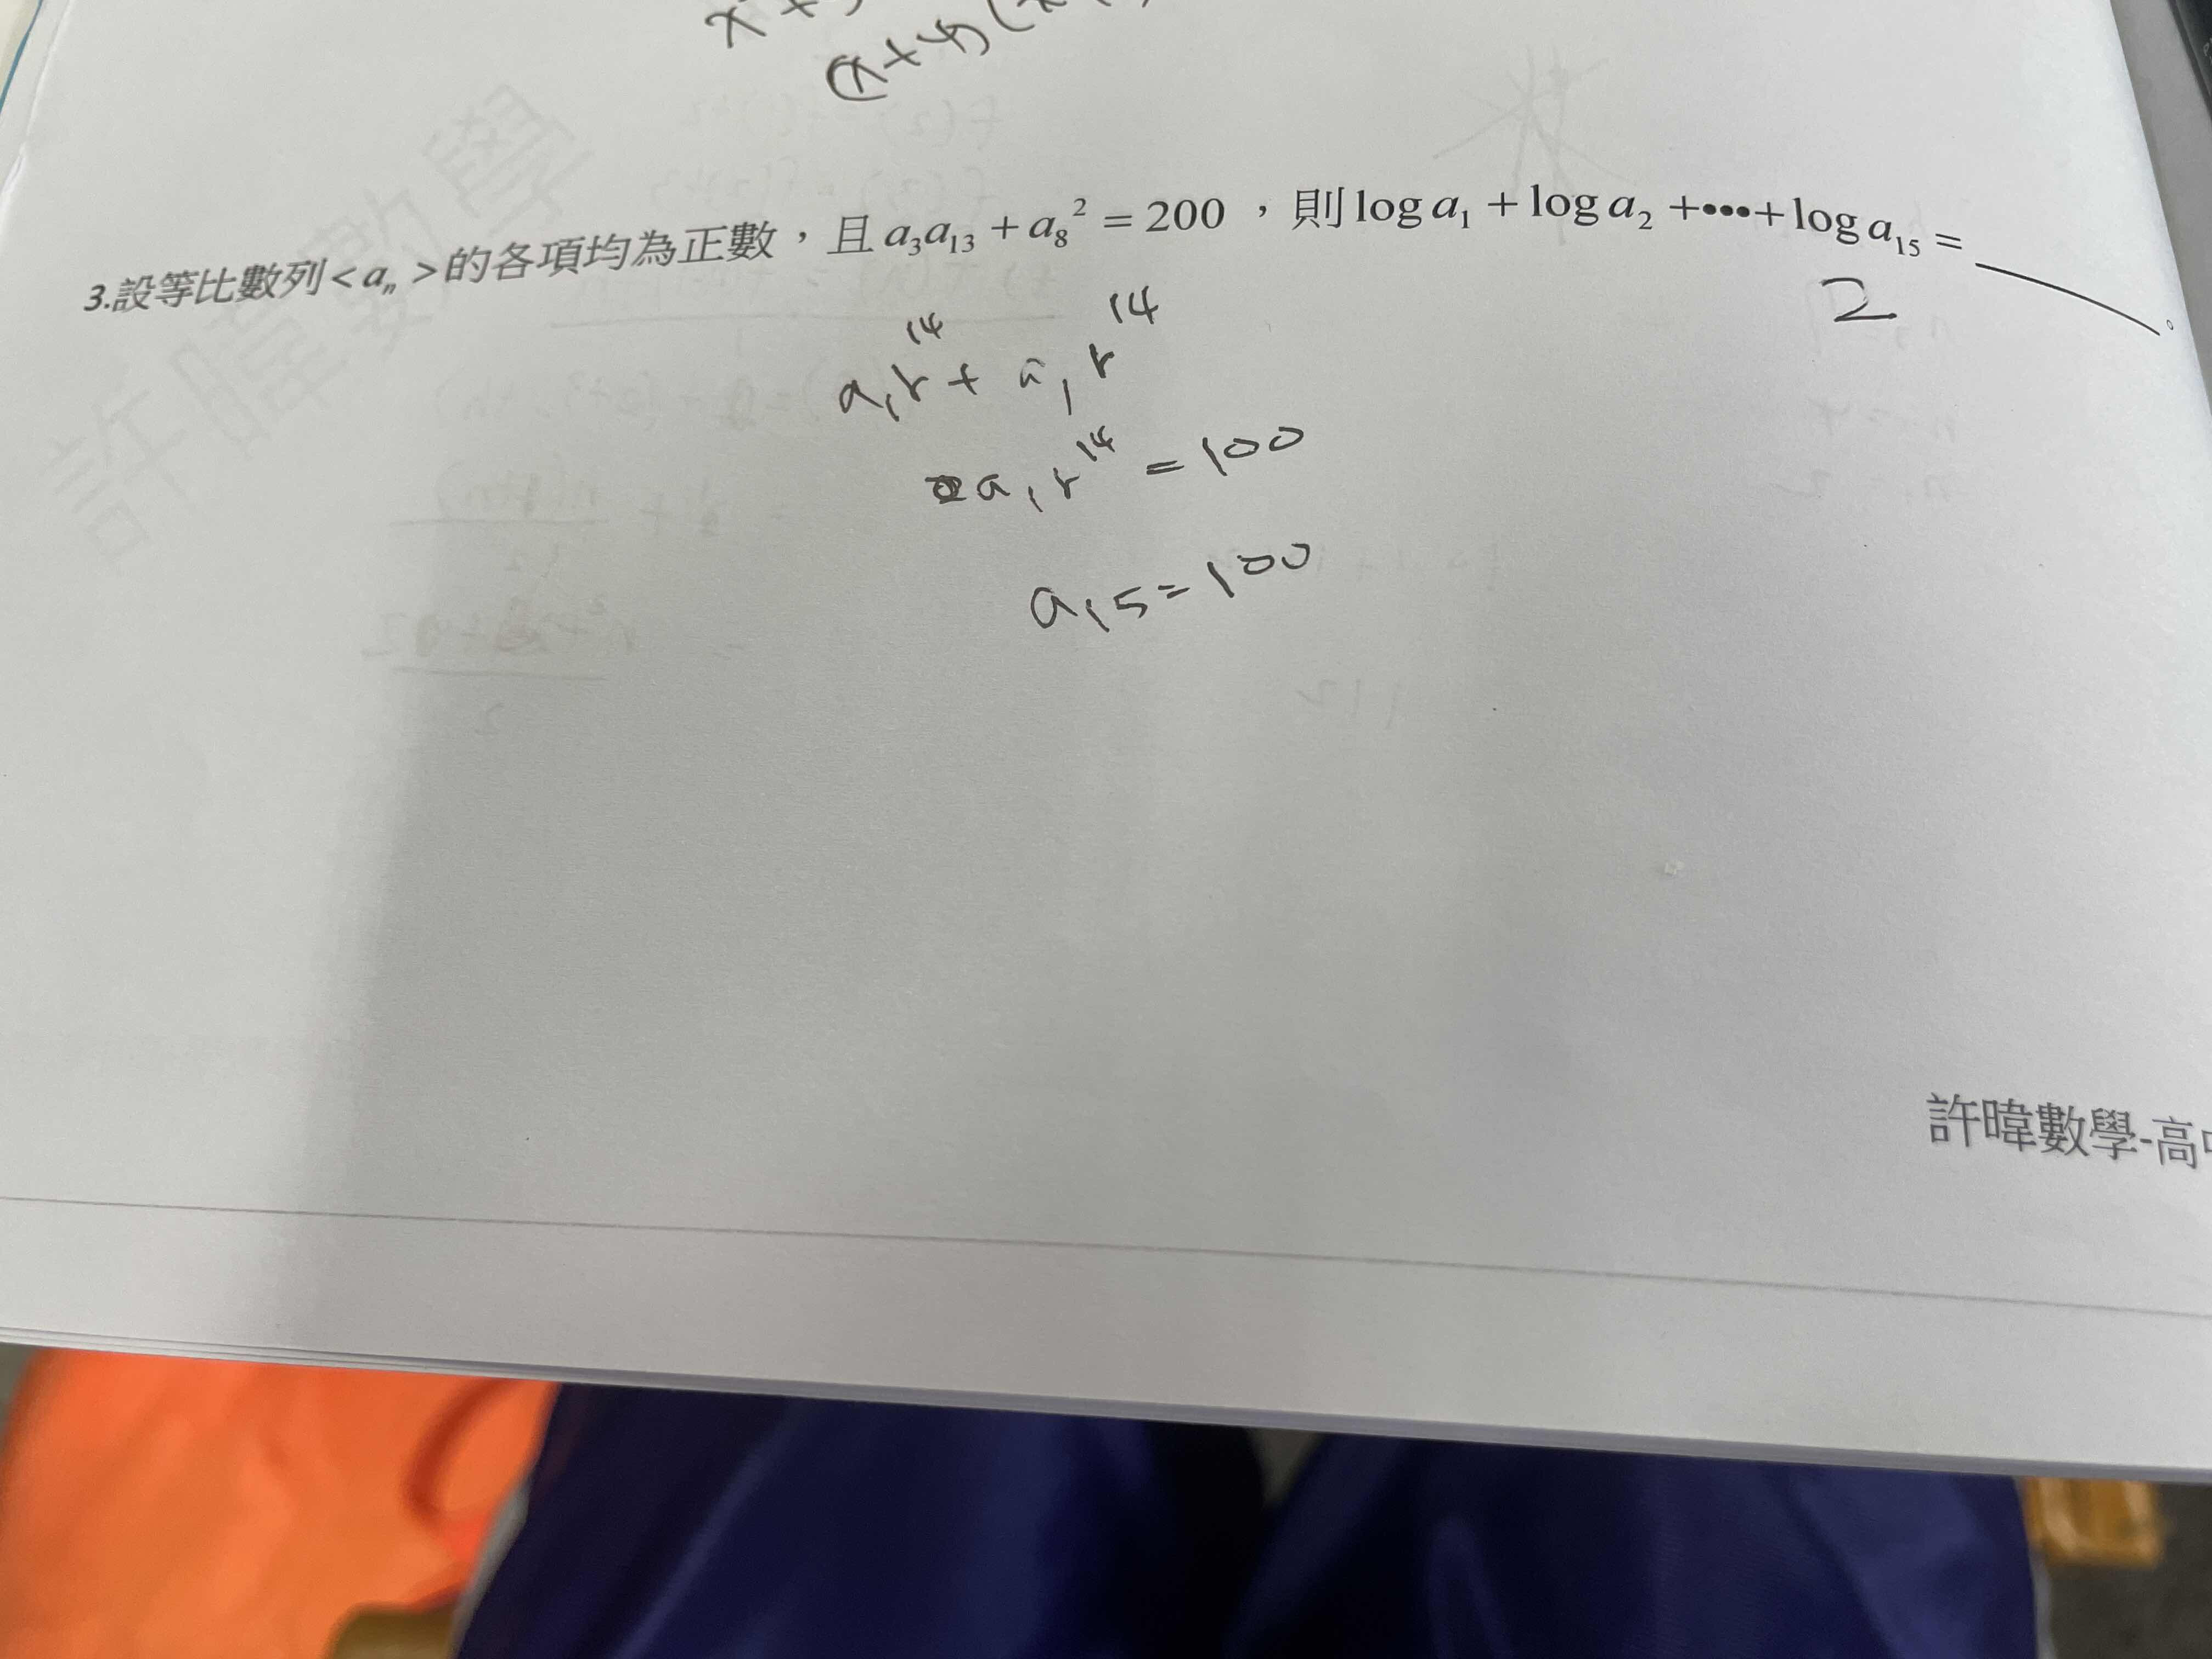 (x+y)(x
3.設等比數列<aₙ>的各項均為正數，且a₃a₁₃+a₈²=200，則log a₁+log a₂+•••+log a₁₅=______。
2
a₁r¹⁴+a₁r¹⁴
a₁r¹⁴=100
a₁₅=100
許暐數學
許暐數學-高中